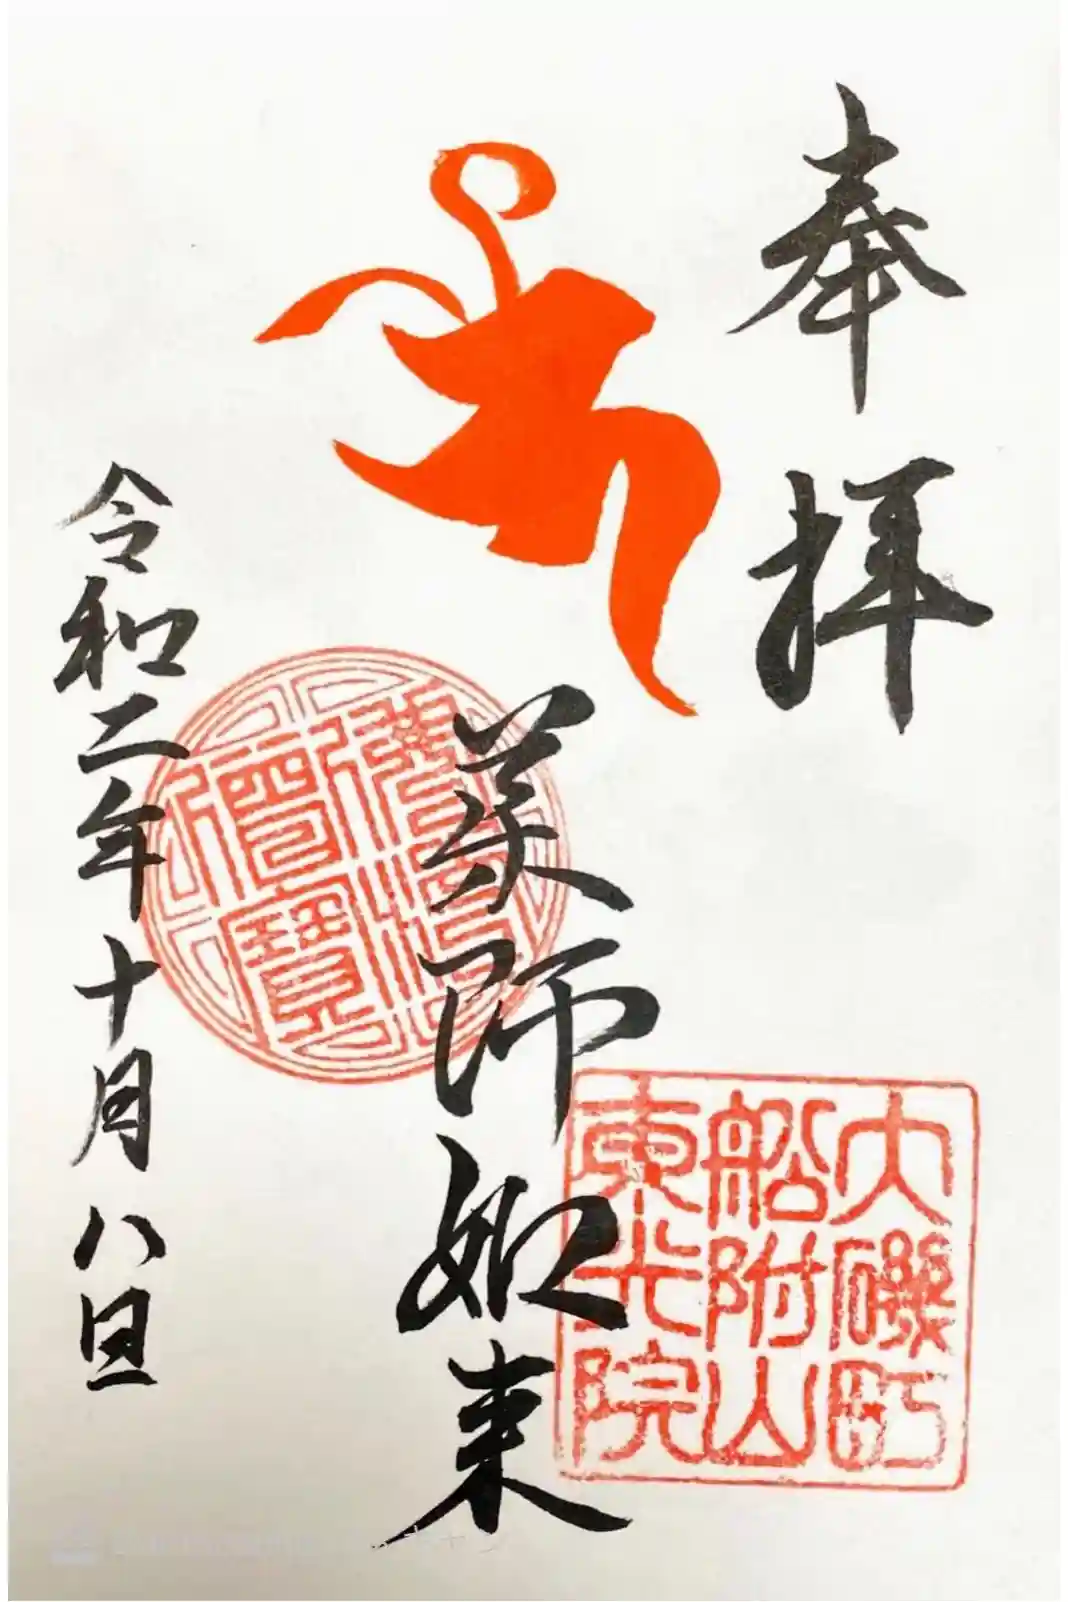 奉拝
薬師如来
大磯町
船附山
東光院
令和二年十月八日